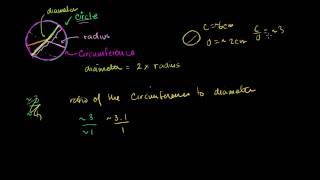 diameter
Circle
radius
Circumference
diameter = 2 × radius
C = 6cm
D = ~2cm
C/D = ~3
ratio of the circumference to diameter
~3/~1 ~3.1/1